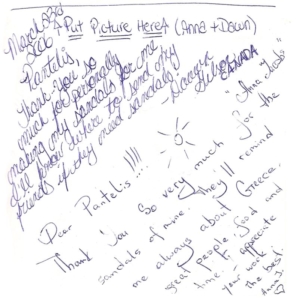 March 23rd
↑ Put Picture Here ↑ (Anna + Dawn)
Pantelis,
Thank you so
much for personally
making my sandals for me
I'll know where to send my
friends if they need sandals!
Dawn
CANADA
Dear Pantelis....!!!!
Thank you so very much for the
sandals of mine. they'll remind
me always about Greece.
great people, food and
time. I appreciate
your work
the best.
Anna